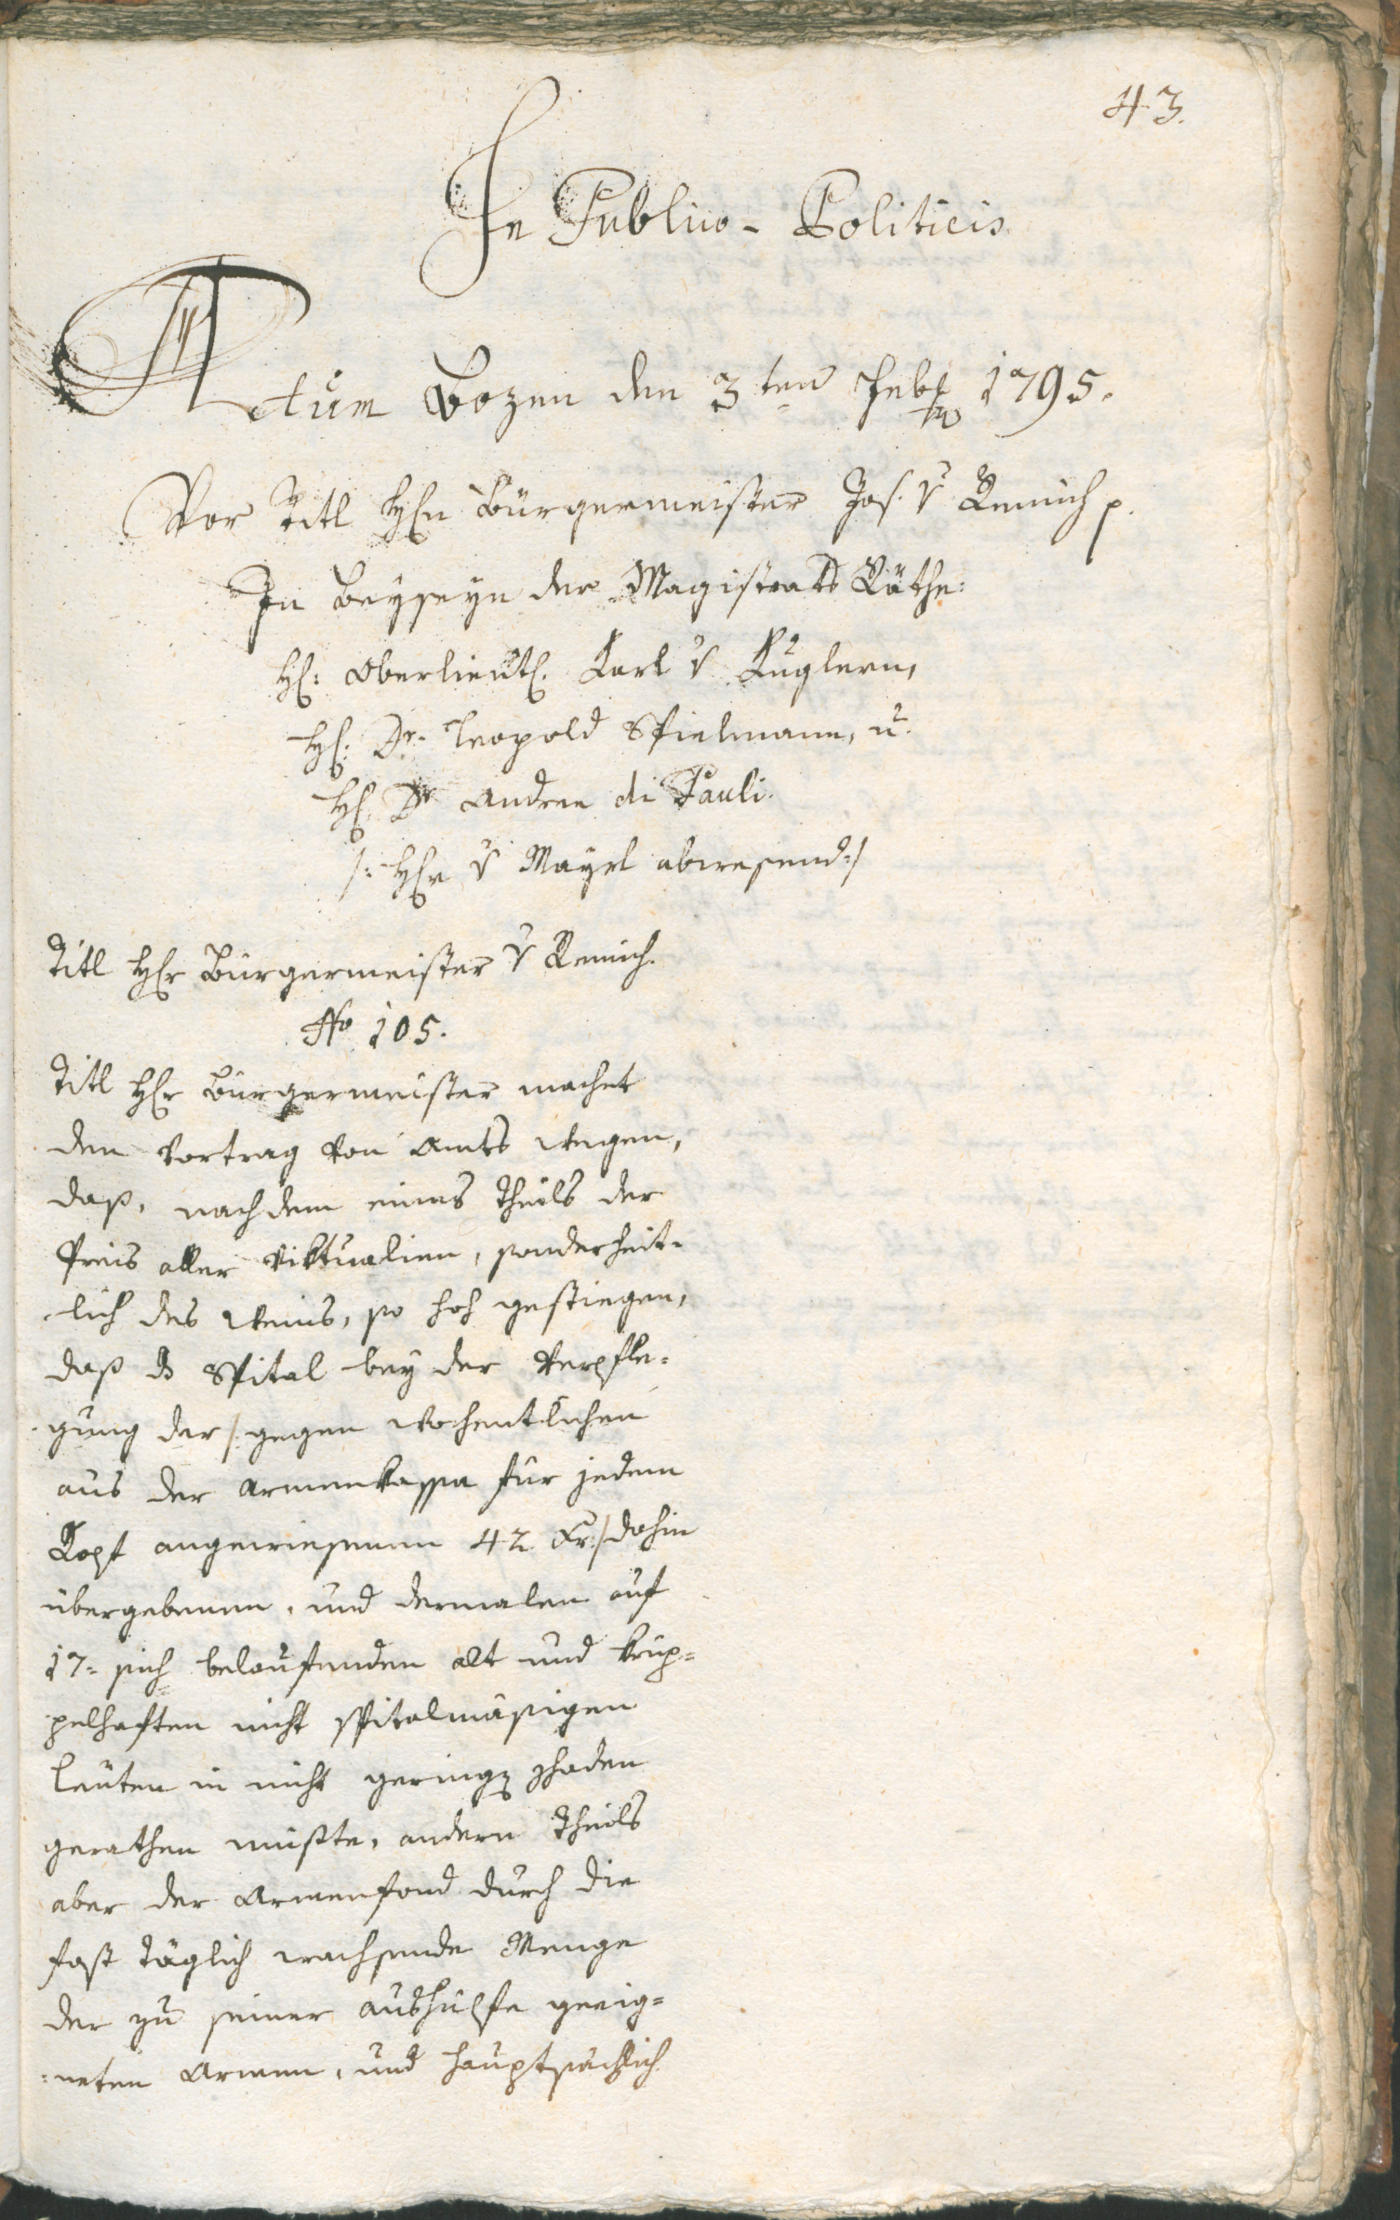 43.
In Publico-Politicis
Actum Bozen den 3ten Febr 1795.
Vor Titl Hrn Bürgermeister Jos. v Remich p.
In Beyseyn der Magistrats Räthe:
Hr: Oberlieut. Carl v Kuglern,
Hr. Dr. Leopold Spielmann, u.
Hr. Dr Andree di Pauli.
/: Hr v Mayrl abwesend :/
Titl Hr Bürgermeister v Remich.
No 105.
Titl Hr Bürgermeister machet
den Vortrag von Amts wegen,
daß, nachdem eines Theils der
Preis aller Viktualien, sonderheit-
lich des Weins, so hoh gestiegen,
daß ds Spital bey der Verpfle-
gung der /: gegen wochentlichen
aus der Armenkassa für jedem
Kopf angewiesenen 42 xr :/ dahin
übergebenen, und dermalen auf
17- sich belaufenden alt und krüp-
pelhaften nicht spitalmäsigen
Leuten in nicht geringen Schaden
gerathen müßte, andern Theils
aber der Armenfond durch die
fast täglich wachsende Menge
der zu seiner Aushülfe geeig-
neten Armen, und hauptsächlich